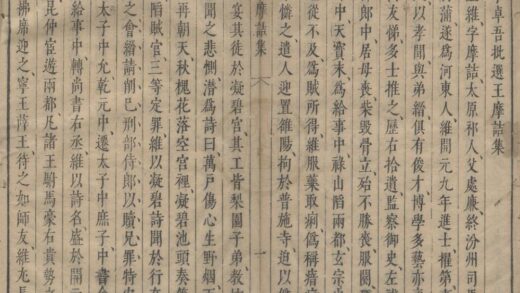 卓吾批選王摩詰集
維字摩詰太原祁人父處廉終汾州司馬
蒲遂為河東人維開元九年進士擢第
以孝聞與弟縉俱有俊才博學多藝亦
友悌多士推之歷右拾遺監察御史左
郎中居母喪柴毀骨立殆不勝喪服闋
中天寶末為給事中祿山陷兩都玄宗
從不及為賊所得維服藥取痢偽稱瘖
憐之遣人迎置雒陽拘於普施寺迫以
摩詰集 一
宴其徒於凝碧宮其工皆梨園子弟教坊
聞之悲惻潛為詩曰萬戶傷心生野烟
再朝天秋槐花落空宮裡凝碧池頭奏
陷賊官三等定罪維以凝碧詩聞於行在
之會縉請削己刑部侍郎以贖兄罪特
太子中允乾元中遷太子中庶子中書
給事中轉尚書右丞維以詩名盛於開元
昆仲宦遊兩都凡諸王駙馬豪右貴勢
拂席迎之寧王薛王待之如師友維尤長